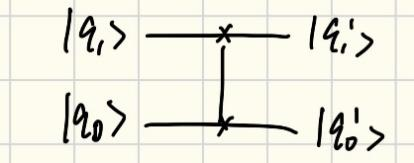 |q₁> |q₁'>
|q₀> |q₀'>